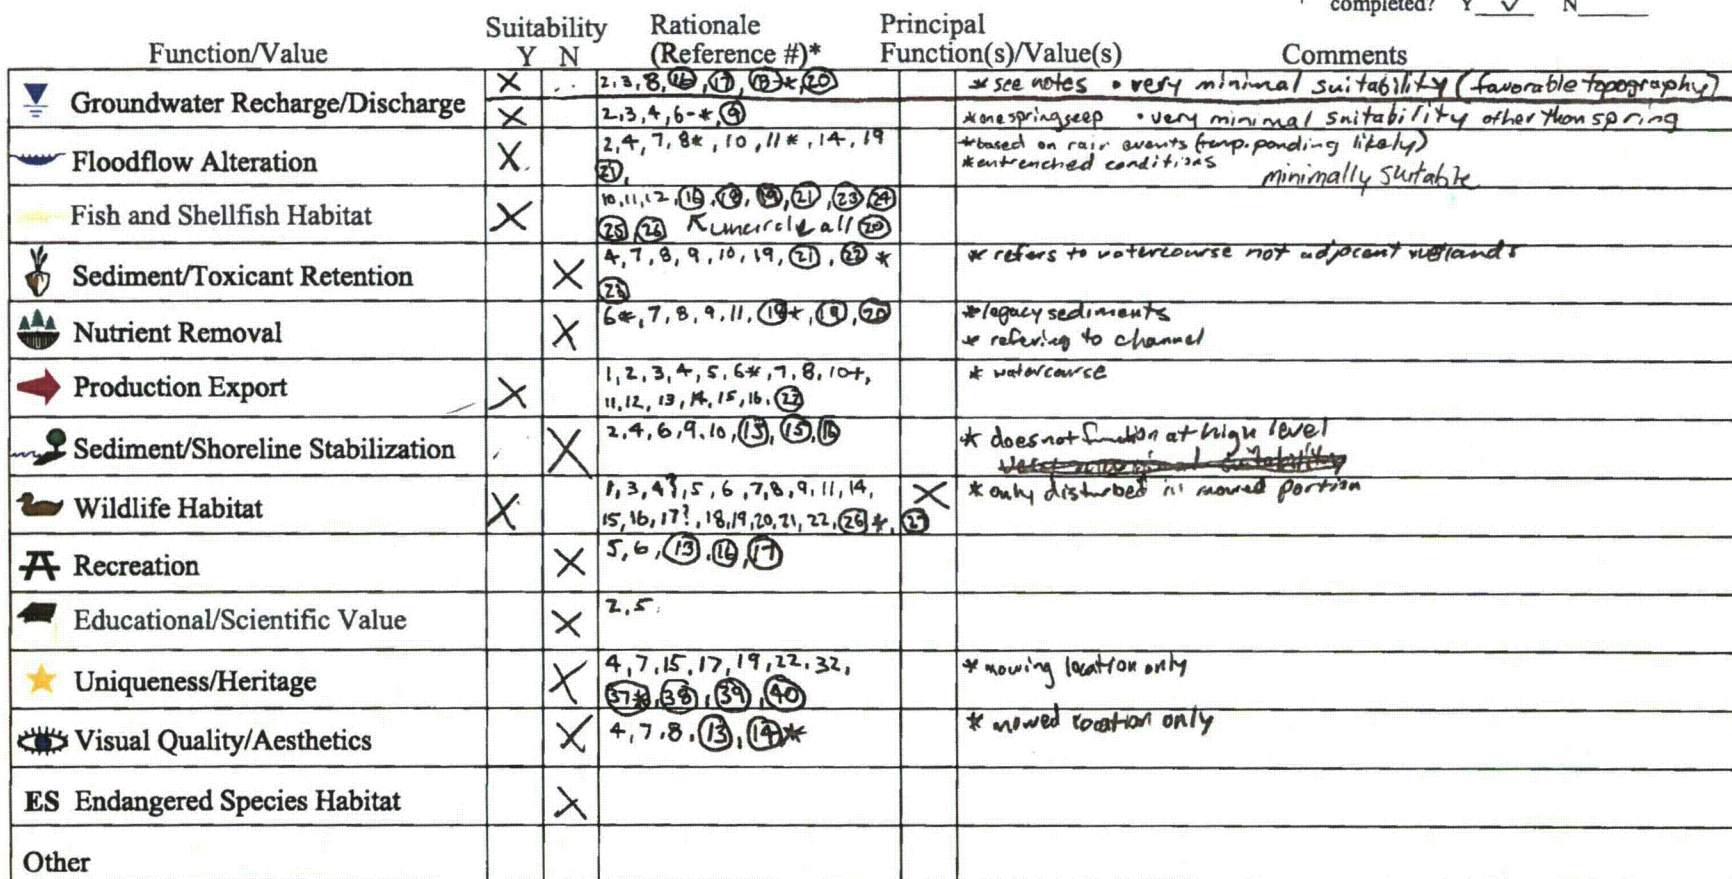 completed? Y ✓ N
Suitability Rationale Principal
Function/Value Y N (Reference #)* Function(s)/Value(s) Comments
Groundwater Recharge/Discharge
X 2,3,8,(16),(17),(18)*,(20) * see notes • very minimal suitability (favorable topography)
X 2,3,4,6-*,(9) * one spring seep • very minimal suitability other than spring
Floodflow Alteration X 2,4,7,8*,10,11*,14,19 * based on rain events (temp. ponding likely)
(21), * entrenched conditions minimally suitable
Fish and Shellfish Habitat X 10,11,12,(16),(21),(23),(24)
(25),(26) ↖ uncircle all (20)
Sediment/Toxicant Retention X 4,7,8,9,10,19,(21),(22)* * refers to watercourse not adjacent wetlands
Nutrient Removal X 6*,7,8,9,11,(18)*,(19),(20) * legacy sediments
* refering to channel
Production Export X 1,2,3,4,5,6*,7,8,10+, * watercourse
11,12,13,14,15,16,
Sediment/Shoreline Stabilization X 2,4,6,9,10,(15),(16) * does not function at high level
Wildlife Habitat X 1,3,4?,5,6,7,8,9,11,14, X * only disturbed in mowed portion
15,16,17?,18,19,20,21,22,(26)*,(27)
Recreation X 5,6,(13),(16),(17)
Educational/Scientific Value X 2,5
Uniqueness/Heritage X 4,7,15,17,19,22,32, * mowing location only
(37*),(38),(39),(40)
Visual Quality/Aesthetics X 4,7,8,(13),(14)* * mowed location only
ES Endangered Species Habitat X
Other